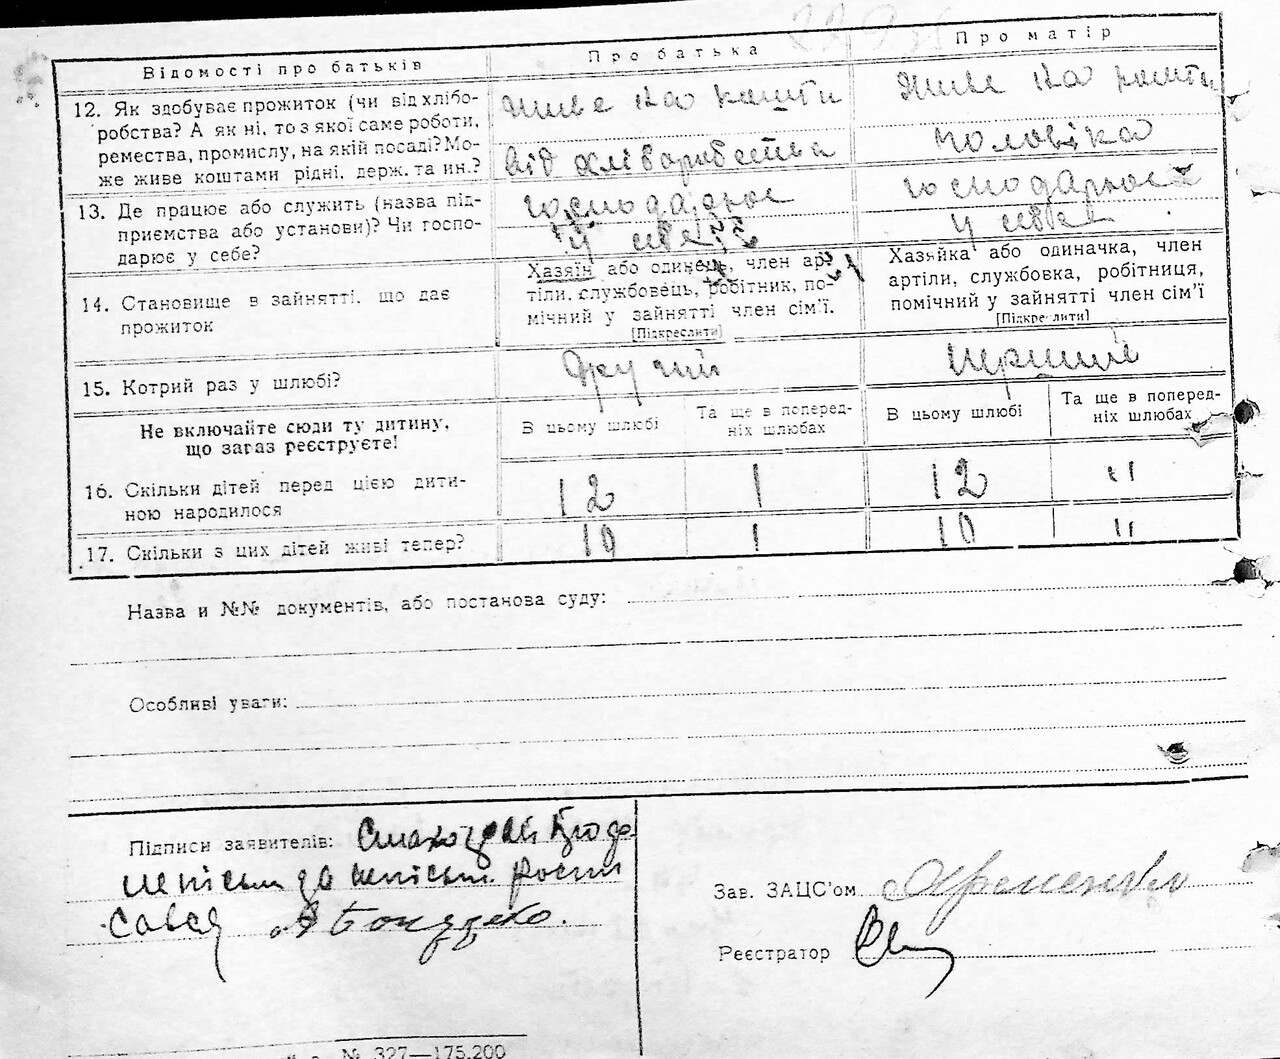 Відомості про батьків
Про батька
Про матір
12. Як здобуває прожиток (чи від хлібо-
робства? А як ні, то з якої саме роботи,
ремества, промислу, на якій посаді? Мо-
же живе коштами рідні, держ. та ин.?
живе на кошти
від хліборобства
живе на кошти
чоловіка
13. Де працює або служить (назва під-
приємства або установи)? Чи госпо-
дарює у себе?
господарює
у себе
господарює
у себе
14. Становище в зайнятті, що дає
прожиток
Хазяїн або одинець, член ар-
тіли, службовець, робітник, по-
мічний у зайнятті член сім'ї.
[Підкреслити]
Хазяйка або одиначка, член
артіли, службовка, робітниця,
помічний у зайнятті член сім'ї
[Підкреслити]
15. Котрий раз у шлюбі?
Другий
Перший
Не включайте сюди ту дитину,
що зараз реєструєте!
В цьому шлюбі
Та ще в поперед-
ніх шлюбах
В цьому шлюбі
Та ще в поперед-
ніх шлюбах
16. Скільки дітей перед цією дити-
ною народилося
12
1
12
"
17. Скільки з цих дітей живі тепер?
10
1
10
"
Назва и №№ документів, або постанова суду:
Особливі уваги:
Підписи заявителів:
непісьм за непісьм
Зав. ЗАЦС'ом
Реєстратор
№ 327—175.200